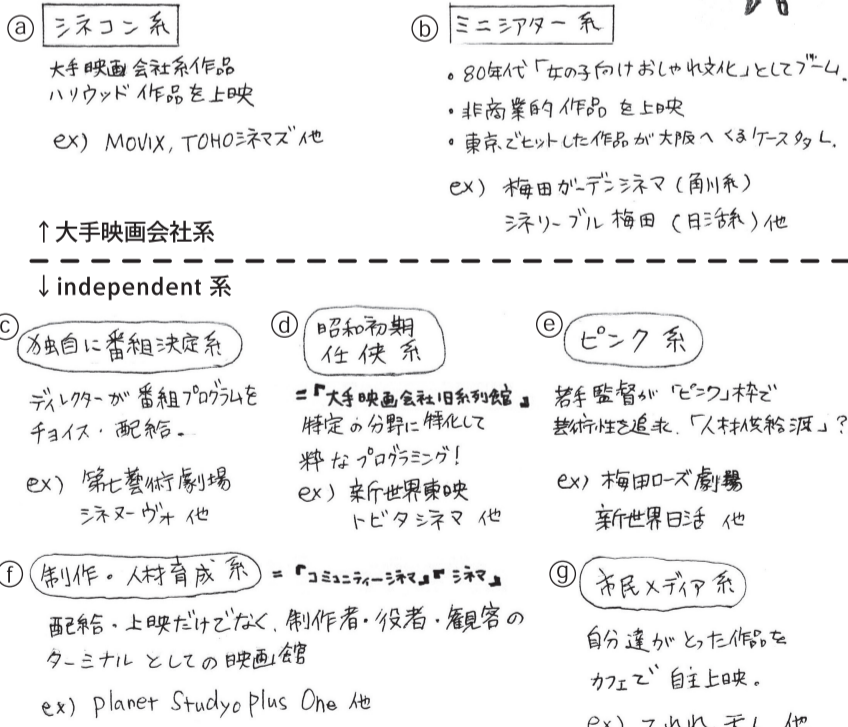 ⓐ シネコン系
大手映画会社系作品
ハリウッド作品を上映
ex) MOVIX, TOHOシネマズ 他
ⓑ ミニシアター系
・80年代「女の子向けおしゃれ文化」としてブーム。
・非商業的作品を上映
・東京でヒットした作品が大阪へくるケース多し。
ex) 梅田ガーデンシネマ(角川系)
シネリーブル梅田(日活系)他
↑大手映画会社系
↓independent 系
ⓒ 独自に番組決定系
ディレクターが番組プログラムを
チョイス・配給。
ex) 第七藝術劇場
シネヌーヴォ 他
ⓓ 昭和初期
任侠系
=『大手映画会社旧系列館』
特定の分野に特化して
粋なプログラミング!
ex) 新世界東映
トビタシネマ 他
ⓔ ピンク系
若手監督が「ピンク」枠で
芸術性を追求、「人材供給源」?
ex) 梅田ローズ劇場
新世界日活 他
ⓕ 制作・人材育成系 =『コミュニティーシネマ』『シネマ』
配給・上映だけでなく、制作者・役者・観客の
ターミナルとしての映画館
ex) planet Studyo Plus One 他
ⓖ 市民メディア系
自分達がとった作品を
カフェで自主上映。
ex) 他